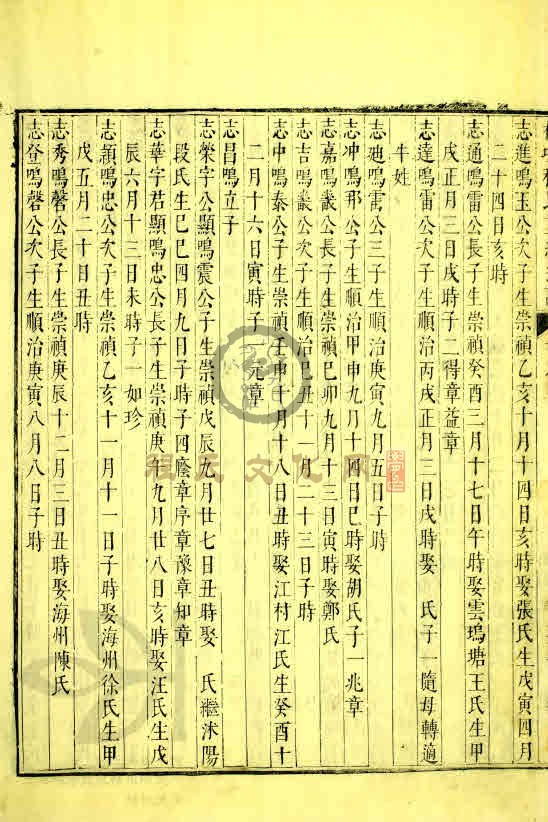 志進鳴玉公次子生崇禎乙亥十月十四日亥時娶張氏生戊寅四月
二十四日亥時
志通鳴雷公長子生崇禎癸酉三月十七日午時娶雲塢塘王氏生甲
戌正月三日戌時子二得章益章
志達鳴雷公次子生順治丙戌正月三日戌時娶 氏子一隨母轉適
牛姓
志迎鳴雷公三子生順治庚寅九月五日子時
志冲鳴那公子生順治甲申九月十四日巳時娶胡氏子一兆章
志吉鳴巖公次子生順治己丑十一月二十三日子時
志嘉鳴巖公長子生崇禎己卯九月十三日寅時娶鄭氏
志中鳴泰公子生崇禎壬申十月十八日丑時娶江村江氏生癸酉十
二月十六日寅時子一元章
志昌鳴立子
志榮字公顯鳴震公子生崇禎戊辰九月廿七日丑時娶 氏繼沭陽
段氏生己巳四月九日子時子四䕃章序章豫章知章
志華字君顯鳴忠公長子生崇禎庚午九月廿八日亥時娶汪氏生戊
辰六月十三日未時子一如珍
志顯鳴忠公次子生崇禎乙亥十一月十一日子時娶海州徐氏生甲
戊五月二十日丑時
志秀鳴磬公長子生崇禎庚辰十二月三日丑時娶海州陳氏
志登鳴磬公次子生順治庚寅八月八日子時
程氏文化网